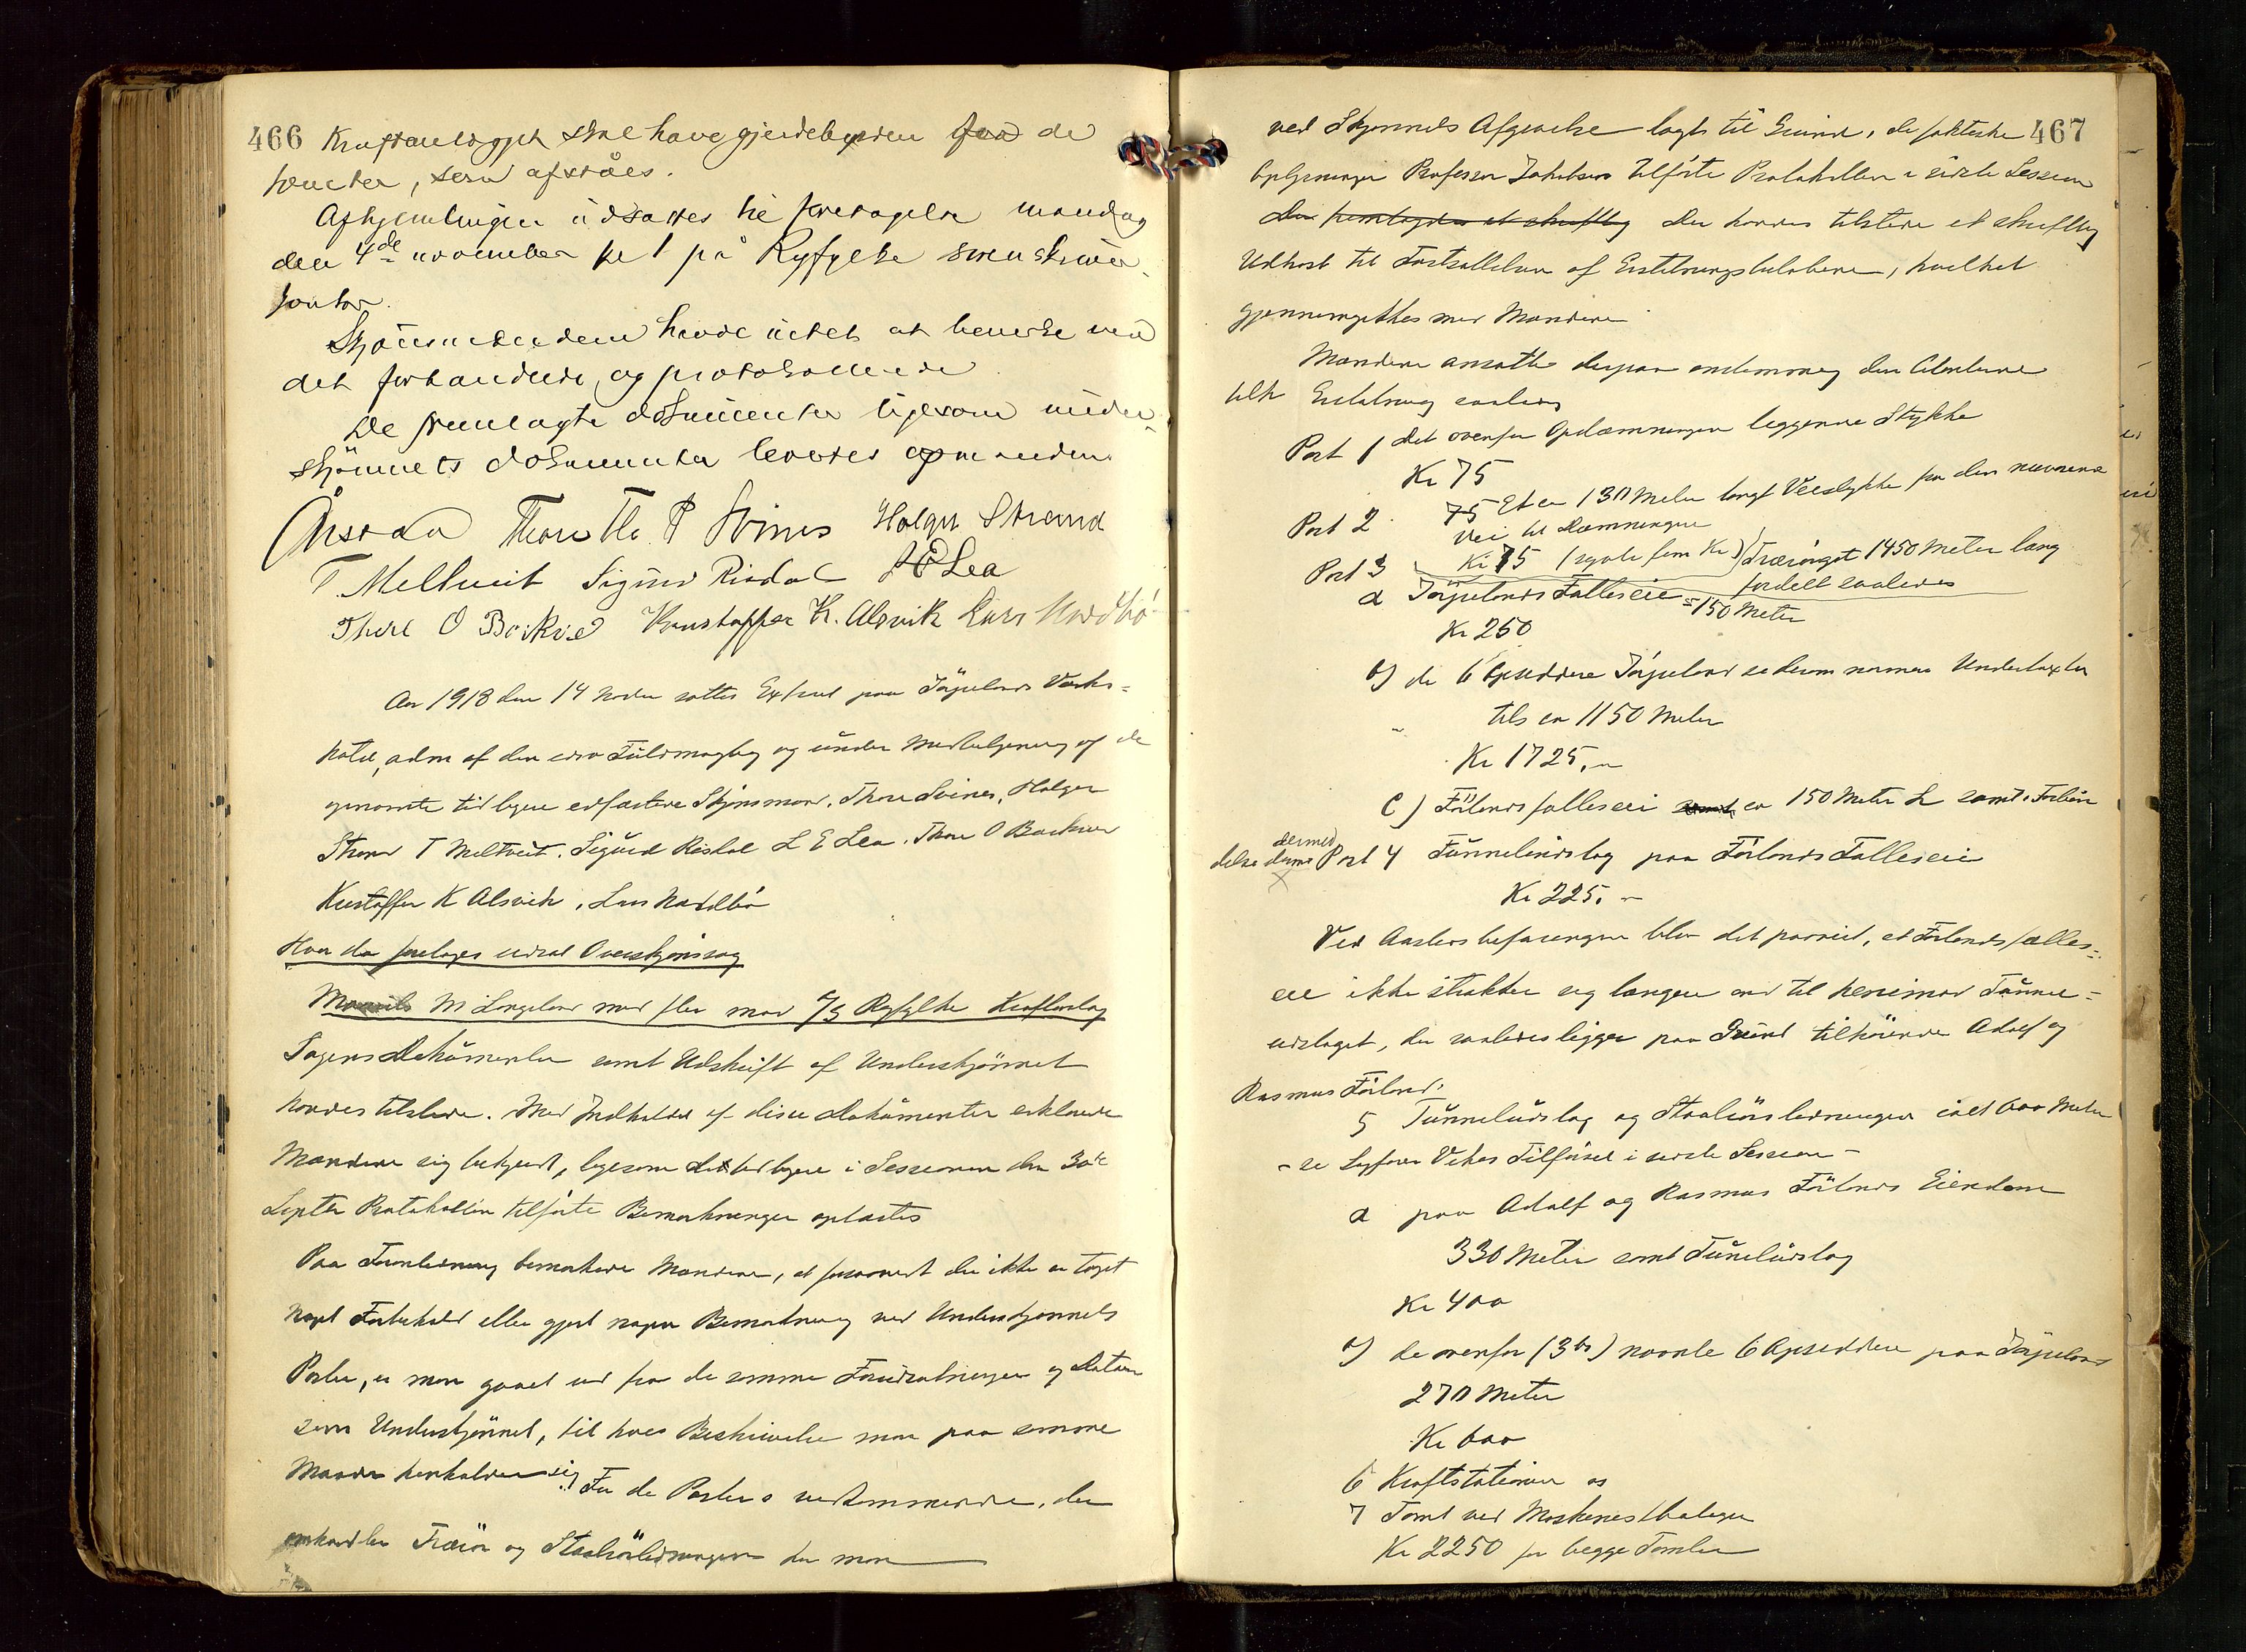 466 Kraftanlægget skal have gjerdebyrden for de
tomter, som afståes.
Afhjemlingen udsattes til foretagelse mandag
den 4de november kl 1 på Ryfylke sorenskriver-
kontor.
Skjönsmændene havde intet at bemerke ved
det forhandlede og protokollerede
De fremlagte dokumenter ligesom under-
skjönnets dokumenter leveredes opmanden.
Thore Th. Svines Holger Strand
T. Meltveit Sigurd Risdal L E Lea
Thore O Barkved Kristoffer K. Alsvik Lars Nordbö
Aar 1918 den 14 Novbr sattes Extraret paa Jörpelands Værks-
hotel, adm af den edsv Fuldmægtig og under Medbetjening af de
opnævnte tidligere edfæstede Skjönsmænd, Thore Svines, Holger
Strand T Meltveit. Sigurd Risdal L E Lea. Thore O Barkved
Kristoffer K Alsvik, Lars Nordbö
Hvor da foretoges udsat Overskjönssag
M Langeland med fler mod A/S Ryfylke Kraftanlæg
Sagens Dokumenter samt Udskrift af Underskjönnet
havdes tilstede. Med Indholdet af disse Dokumenter erklærede
Mændene sig bekjendt, ligesom de tidligere i Sessionen den 30te
Septbr Protokollen tilförte Bemærkninger oplæstes
Paa Foranledning bemærkede Mændene, at forsaavidt der ikke er taget
noget Forbehold eller gjort nogen Bemærkning ved Underskjönnets
Poster, er man gaaet ud fra de samme Forudsætninger og Data
som Underskjönnet, til hvis Beskrivelse man paa samme
Maade henholder sig. For de Posters vedkommende, der
omhandler Trærör og Staalrörledningen har man
467
ved Skjönnets Afgivelse lagt til Grund, de faktiske
Oplysninger Professor Jakobsen tilförte Protokollen i sidste Session
Der fremlagdes et skriftlig Der havdes tilstede et skriftlig
Udkast til Fastsættelsen af Erstatningsbeløbene, hvilket
gjennemgikkes med Mændene
Mændene ansatte derpaa enstemmig den Citanterne
tilk Erstatning saaledes
Post 1 Det ovenfor Opdæmningen liggende Stykke
Kr 75
Post 2 75 Et ca 130 Meter langt Veistykke fra den nuværende
Vei til Dæmningen
Kr 75 (sytti fem Kr)
Post 3 Trærøret 1450 Meter lang
fordelt saaledes
a Jörpelands Fælleseie = 150 Meter
Kr 250
b) de 6 Opsiddere Jörpeland se derom nærmere Undertaxten
tils ca 1150 Meter
Kr 1725,-
c) Förlands fælleseie samt ca 150 Meter L samt i Forbin
delse dermed Post 4 Tunnelindslag paa Förlands Fælleseie
Kr 225.-
Ved Aastedsbefaringen blev det paavist, at Förlands fælles-
eie ikke strækker sig længere end til henimod Tunnel-
udslaget, der saaledes ligger paa Grund tilhörende Adolf og
Rasmus Förland.
5 Tunneludslag og Staalrörsledningen ialt 600 Meter
- se Sagförer Vikes Tilförsel i sidste Session -
a paa Adolf og Rasmus Förlands Eiendom
330 Meter samt Tuneludslag
Kr 400
b) de ovenfor (3 b) nævnte 6 Opsiddere paa Jörpeland
270 Meter
Kr 600
6 Kraftstationen og
7 Tomt ved Maskinistboligen
Kr 2250 for begge Tomter